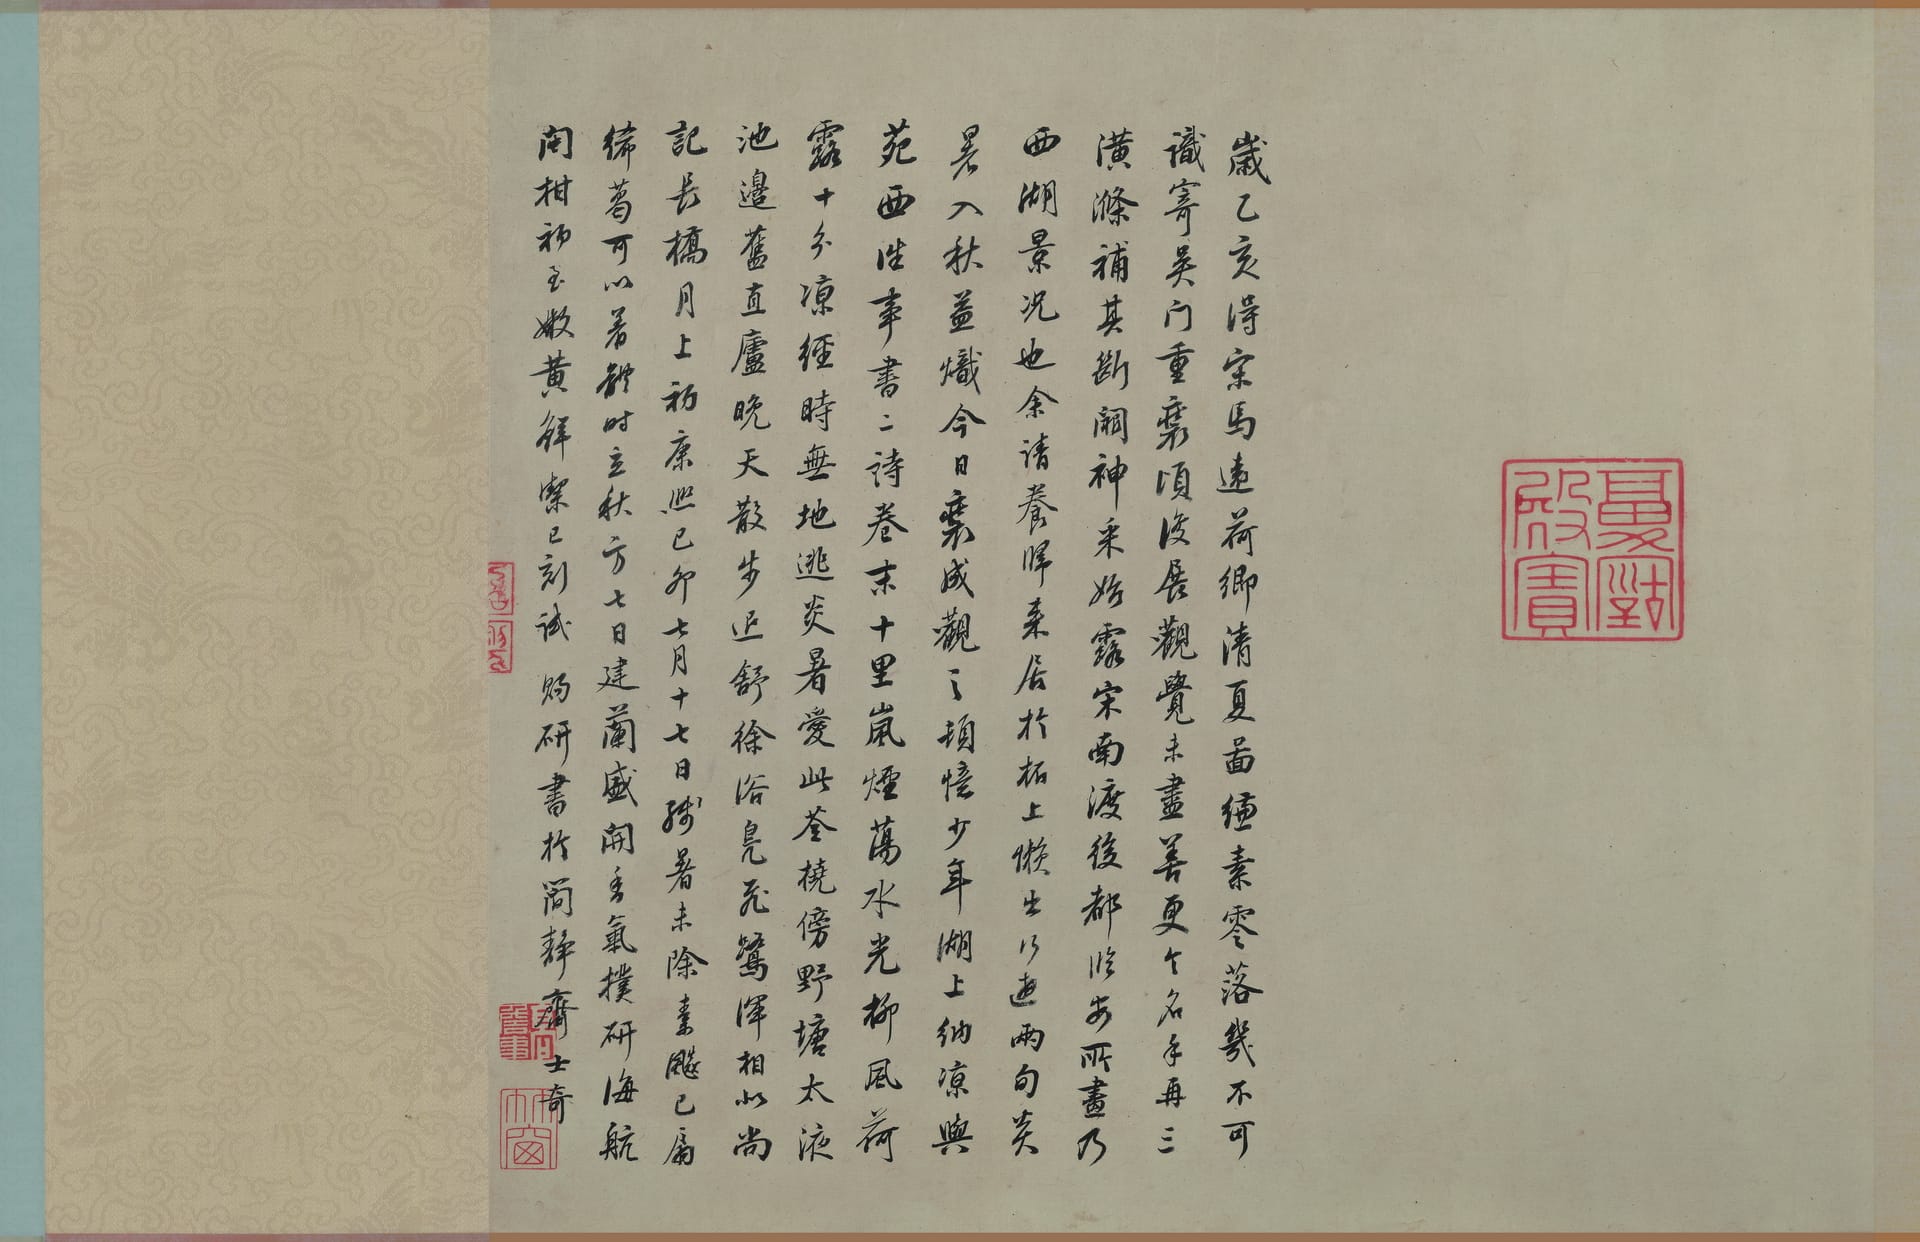 歲乙亥得宋馬遠荷鄉清夏圖縑素零落幾不可
識寄吳門重裝頃復展觀覺未盡善更令名手再三
潢滌補其斷闕神采始露宋南渡後都臨安所畫乃
西湖景況也余請養歸來居於柘上懶出行遊兩旬炎
暑入秋益熾今日裝成觀之頓憶少年湖上納涼與
苑西往事書二詩卷末十里嵐煙蕩水光柳風荷
露十分涼經時無地逃炎暑愛此荃橈傍野塘太液
池邊舊直廬晚天散步迟舒徐浴鳧飛鷺渾相似尚
記長橋月上初康熙己卯七月十七日殘暑未除素飈已扇
絺葛可以著體時立秋方七日建蘭盛開香氣撲研海航
閩柑初至嫩黃鮮潔已刻試賜研書於簡靜齋士奇
夏勤殿寶
竹窗